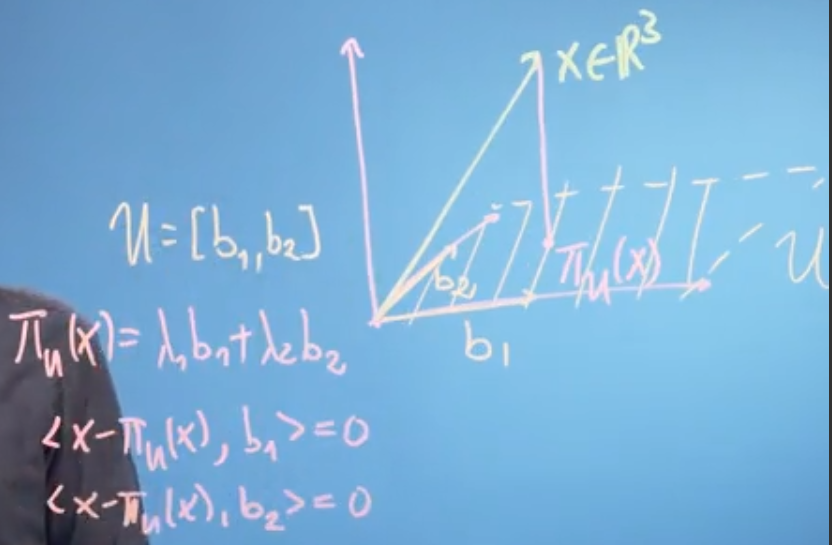 x∈ℝ³
U=[b₁,b₂]
b₂
π_U(x)
U
b₁
π_U(x)=λ₁b₁+λ₂b₂
<x-π_U(x), b₁>=0
<x-π_U(x), b₂>=0